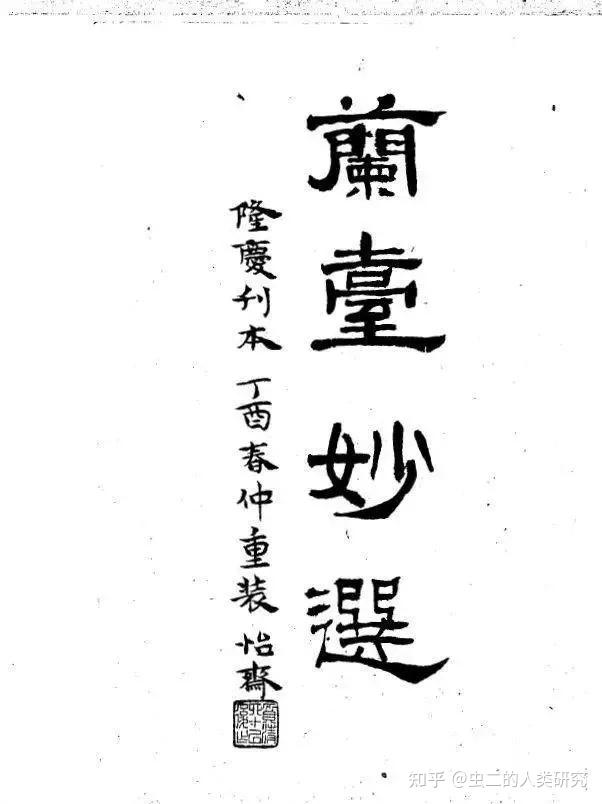 蘭臺妙選
隆慶刊本 丁酉春仲重装 怡齋
知乎 @虫二的人类研究